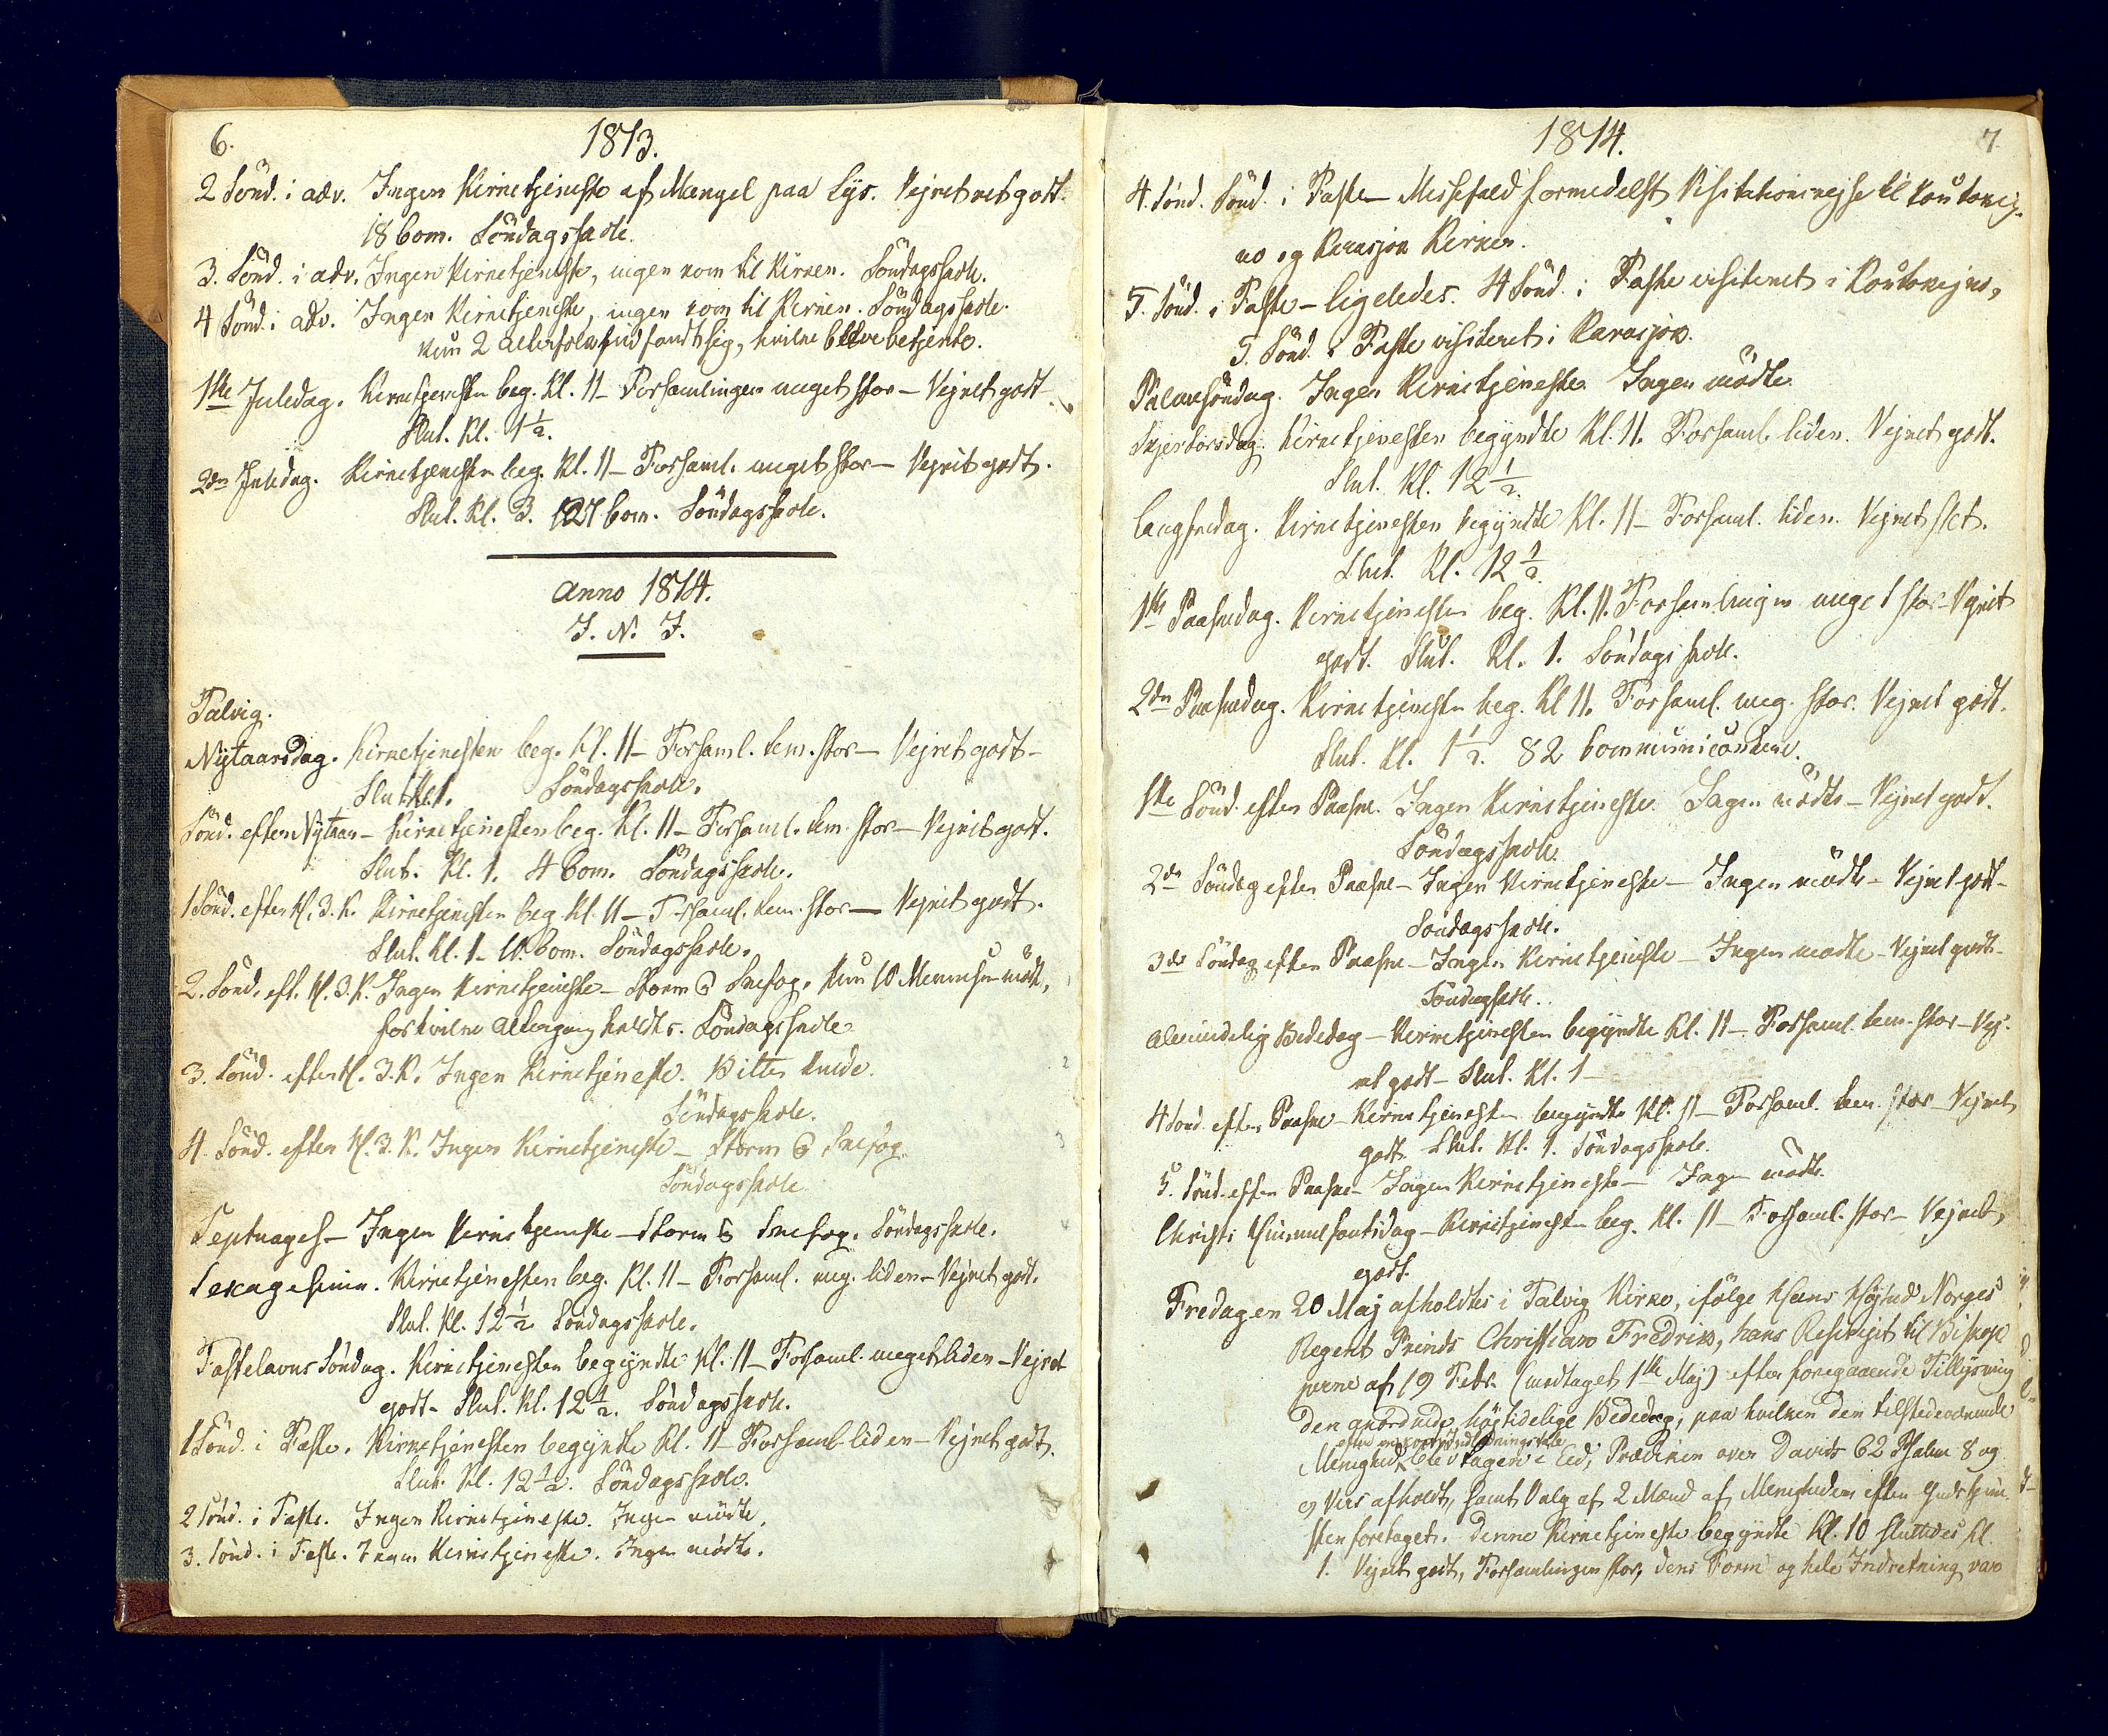 6.
1813.
2 Sönd. i adv. Ingen Kirketjeneste af Mangel paa Lys. Vejret ret godt.
18 Com. Söndagsskole.
3. Sönd. i adv. Ingen Kirketjeneste, ingen kom til Kirken. Söndagsskole.
4 Sönd. i adv. Ingen Kirketjeneste, ingen kom til Kirken. Söndagsskole.
kun 2 Altersfolk indfandt sig, hvilke bleve betjente.
1ste Juledag. Kirketjenesten beg. Kl. 11 – Forsamlingen meget stor – Vejret godt
Slut. Kl. 1½.
2den Juledag. Kirketjenesten beg. Kl. 11 – Forsaml. meget stor – Vejret godt.
Slut. Kl. 3. 127 Com. Söndagsskole.
Anno 1814.
J. N. J.
Talvig.
Nytaarsdag. Kirketjenesten beg. Kl. 11 – Forsaml. tem. stor – Vejret godt –
Slut Kl. 1. Söndagsskole.
Sönd. efter Nytaar – Kirketjenesten beg. Kl. 11 – Forsaml. tem. stor – Vejret godt.
Slut. Kl. 1. 4 Com. Söndagsskole.
1 Sönd. efter H. 3. K. Kirketjenesten beg. Kl. 11 – Forsaml. tem. stor – Vejret godt.
Slut. Kl. 1 – 10 Com. Söndagsskole.
2. Sönd. eft. H. 3. K. Ingen Kirketjeneste – Storm & Snefog. Kun 10 Mennesker mödte,
for hvilke Altergang holdtes. Söndagsskole.
3. Sönd. efter H. 3. K. Ingen Kirketjeneste. Bitter Kulde.
Söndagsskole.
4. Sönd. efter H. 3. K. Ingen Kirketjeneste – Storm & Snefog.
Söndagsskole
Septuages – Ingen Kirketjeneste – Storm & Snefog. Söndagsskole.
Sexagesima. Kirketjenesten beg. Kl. 11 – Forsaml. meg. liden – Vejret godt.
Slut. Kl. 12½ Söndagsskole.
Fastelavns Söndag. Kirketjenesten begyndte Kl. 11 – Forsaml. meget liden – Vejret
godt – Slut. Kl. 12½. Söndagsskole.
1 Sönd. i Faste. Kirketjenesten begyndte Kl. 11 – Forsaml. liden – Vejret godt.
Slut. Kl. 12½. Söndagsskole.
2 Sönd. i Faste. Ingen Kirketjeneste. Ingen mödte.
3. Sönd. i Faste. Ingen Kirketjeneste. Ingen mödte.
1814.
7
4. Sönd. Sönd. i Faste – Messefald formedelst Visitationsrejse til Koutokej-
no og Karasjok Kirker.
5. Sönd. i Faste – ligeledes. 4 Sönd. i Faste visiteret i Koutokejno,
5. Sönd. i Faste visiteret i Karasjok.
Palmesöndag. Ingen Kirketjeneste. Ingen mödte
Skjertorsdag. Kirketjenesten begyndte Kl. 11. Forsaml. liden. Vejret godt.
Slut. Kl. 12½.
Langfredag. Kirketjenesten begyndte Kl. 11 – Forsaml. liden. Vejret slet.
Slut. Kl. 12½.
1ste Paaskedag. Kirketjenesten beg. Kl. 11. Forsamlingen meget stor – Vejret
godt. Slut. Kl. 1. Söndagsskole.
2den Paaskedag. Kirketjenesten beg. Kl 11. Forsaml. meg. stor. Vejret godt.
Slut. Kl. 1½. 82 Communicantere.
1ste Sönd. efter Paaske. Ingen Kirketjeneste. Ingen mödte – Vejret godt.
Söndagsskole.
2den Söndag efter Paaske – Ingen Kirketjeneste – Ingen mödte – Vejret godt –
Söndagsskole.
3die Söndag efter Paaske – Ingen Kirketjeneste – Ingen mödte – Vejret godt –
Söndagsskole.
Almindelig Bededag – Kirketjenesten begyndte Kl. 11 – Forsaml. tem. stor – Vej-
ret godt – Slut. Kl. 1 –
4 Sönd. efter Paaske – Kirketjenesten begyndte Kl. 11 – Forsaml. tem. stor – Vejret
godt – Slut. Kl. 1. Söndagsskole.
5. Sönd. efter Paaske – Ingen Kirketjeneste – Ingen mödte.
Christi Himmelfartsdag – Kirketjenesten beg. Kl. 11 – Forsaml. stor – Vejret
godt.
Fredagen 20 Maj afholdtes i Talvig Kirke, ifölge Hans Höjhed Norges
Regent Prinds Christian Fredriks, hans Rescript til Biskop
perne af 19 Febr. (modtaget 1ste Maj) efter foregaaende Tillysning
den anordnede höjtidelige Bededag, paa hvilken den tilstedeværende
Menighed blev tagen i Eed, Prædiken over Davids 62 Psalme 8 og
9 Vers afholdt, samt Valg af 2 Mænd af Menigheden efter Gudstjene-
sten foretaget. Denne Kirketjeneste begyndte Kl. 10 sluttedes Kl.
1. Vejret godt, Forsamlingen stor, dens Form og hele Indretning var